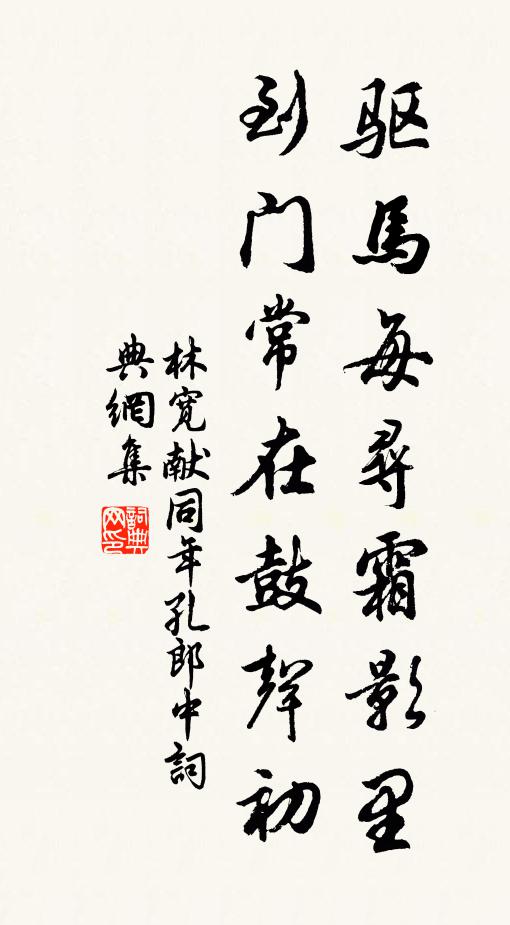 驱馬每尋霜影里
到门常在鼓聲初
林寛献同年孔郎中詞
典網集
詞典网印